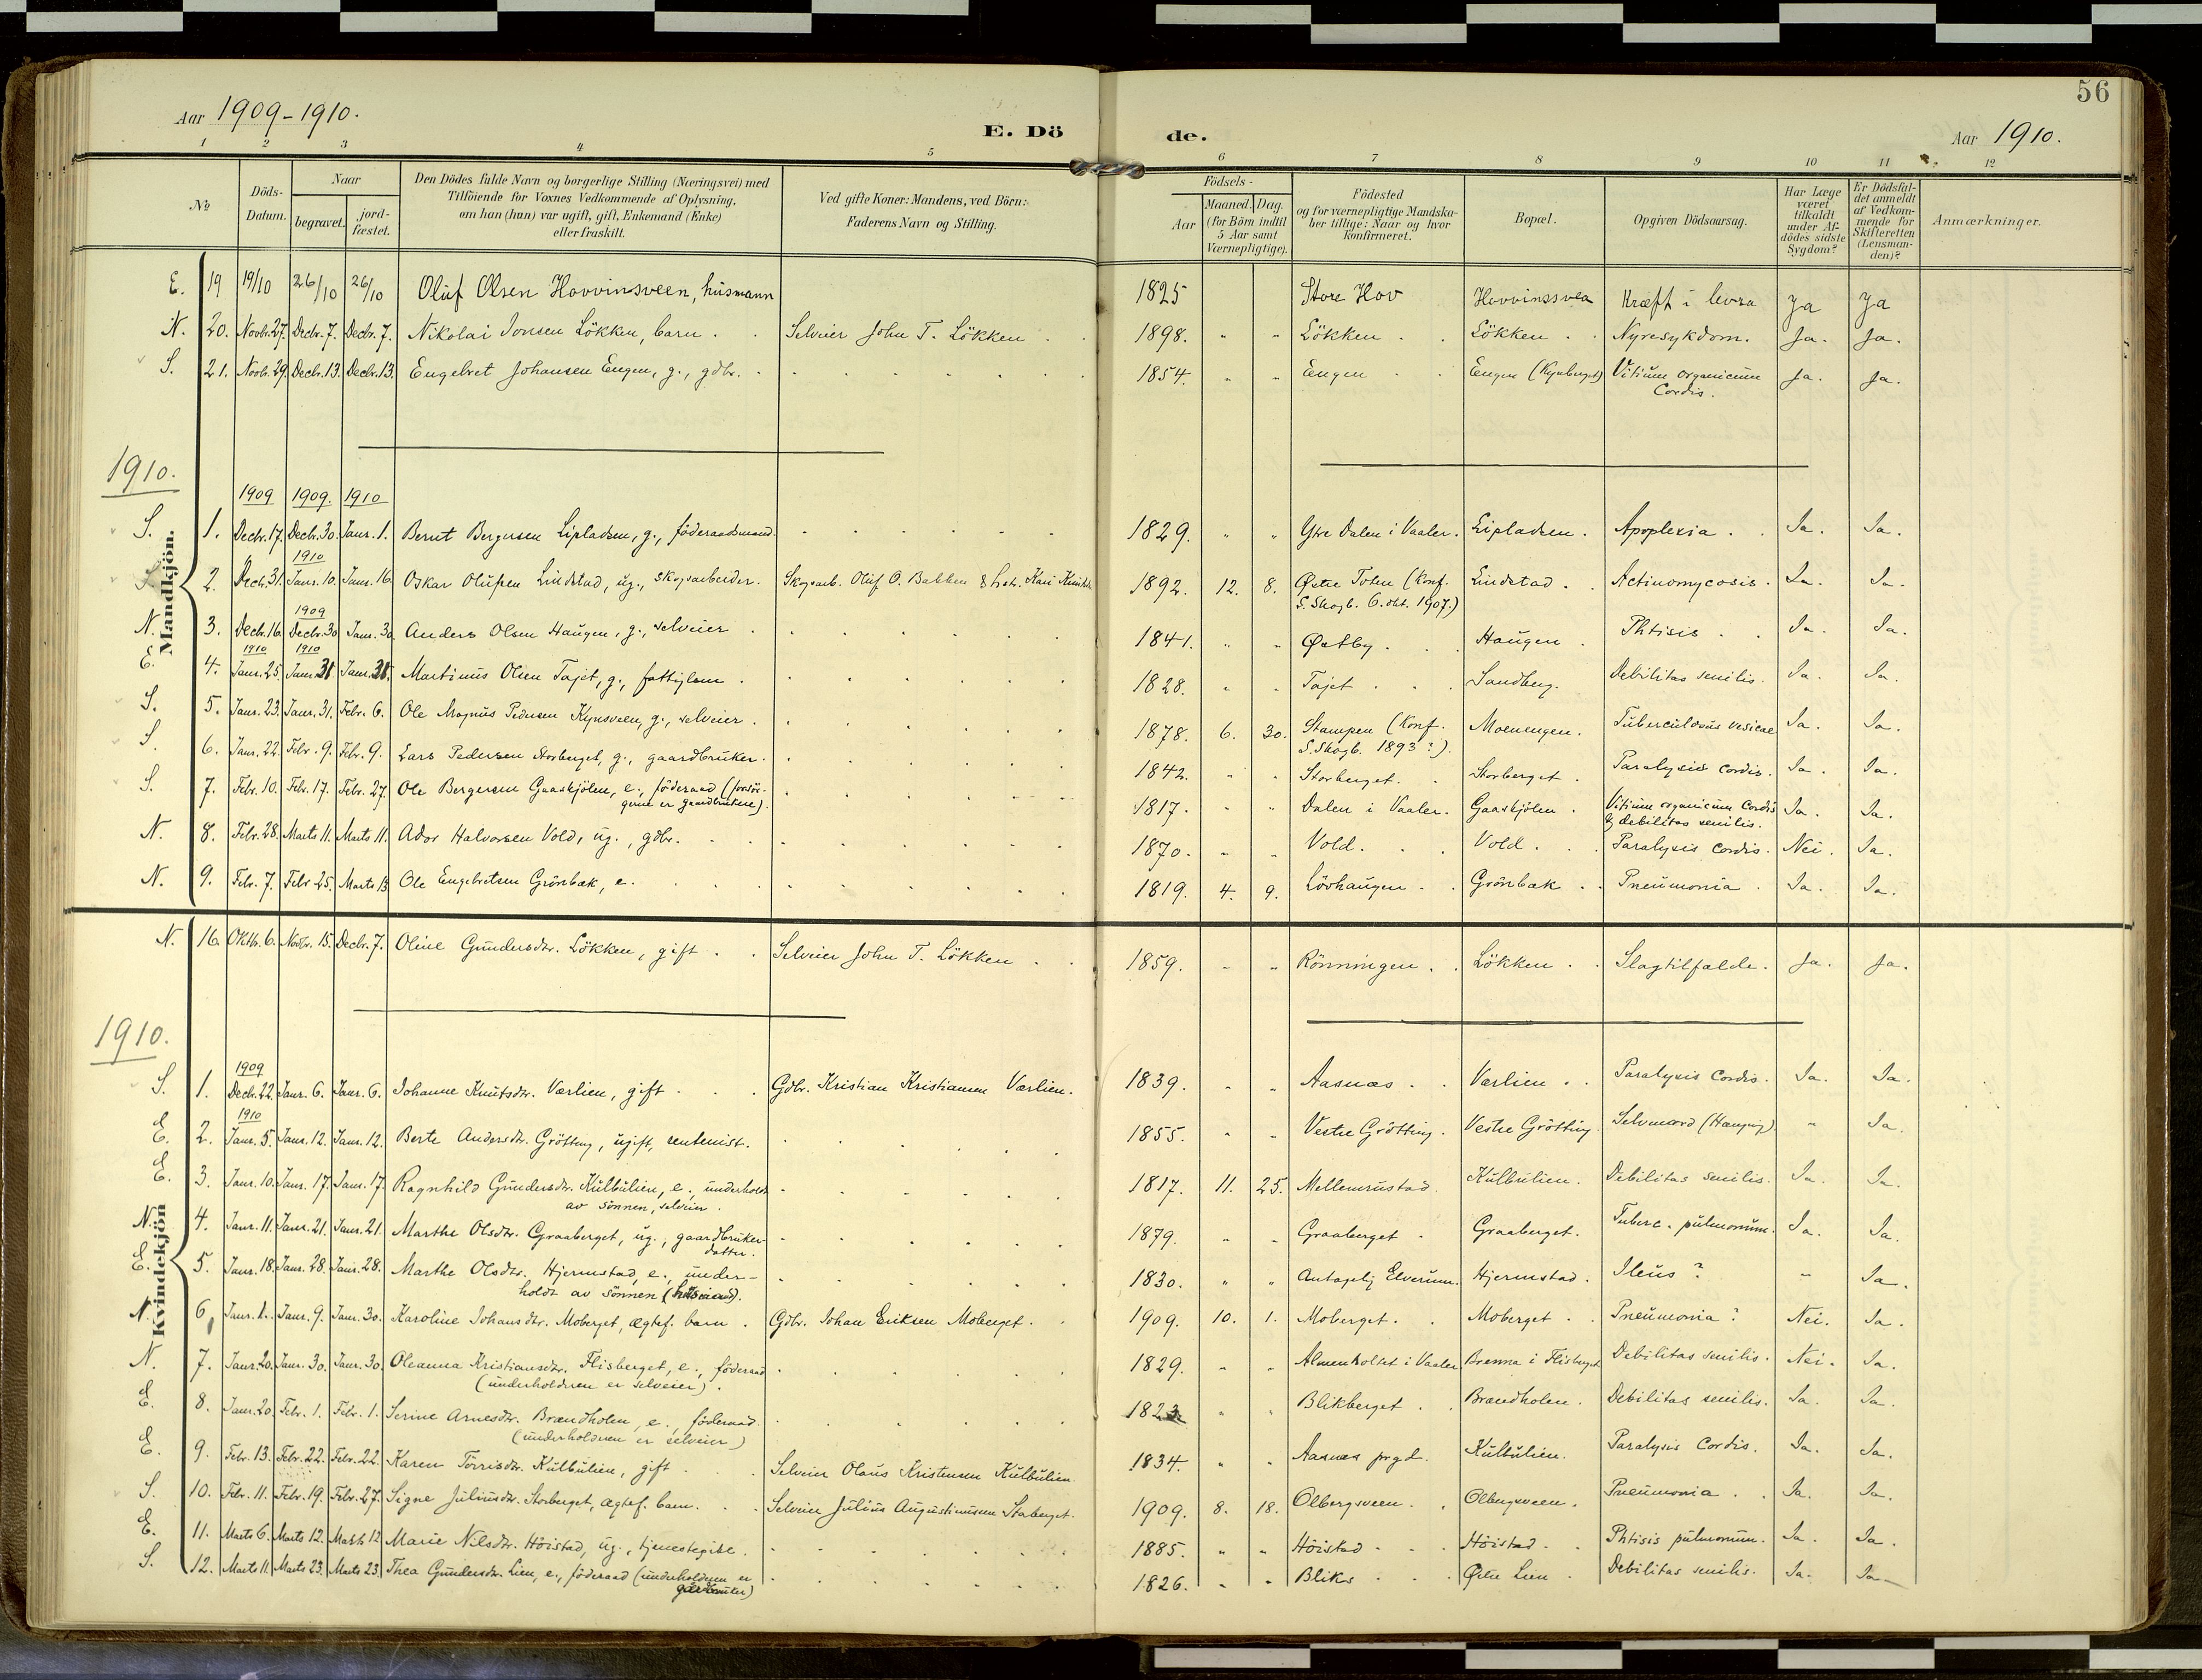 56
Aar 1909-1910.
E. Döde.
Aar 1910.
1 2 3 4 5 6 7 8 9 10 11 12
№
Döds-Datum.
Naar
begravet.
jord-fæstet.
Den Dödes fulde Navn og borgerlige Stilling (Næringsvei) med
Tilföiende for Voxnes Vedkommende af Oplysning,
om han (hun) var ugift, gift, Enkemand (Enke)
eller fraskilt.
Ved gifte Koner: Mandens, ved Börn:
Faderens Navn og Stilling.
Födsels-
Aar
Maaned. Dag.
(for Börn indtil
5 Aar samt
Værnepligtige).
Födested
og for værnepligtige Mandska-
ber tillige: Naar og hvor
konfirmeret.
Bopæl.
Opgiven Dödsaarsag.
Har Læge
været
tilkaldt
under Af-
dödes sidste
Sygdom?
Er Dödsfal-
det anmeldt
af Vedkom-
mende for
Skifteretten
(Lensman-
den)?
Anmærkninger.
Mandkjön.
E. 19 19/10 26/10 26/10 Oluf Olsen Hovvinsveen, husmann 1825 Store Hov Hovvinssvea Kræft i levra Ja Ja
N. 20. Novbr. 27. Decbr. 7. Decbr. 7. Nikolai Jonsen Lökken, barn . Selveier John T. Lökken 1898. " " Lökken Lökken Nyresykdom. Ja. Ja.
S. 21. Novbr. 29. Decbr. 13. Decbr. 13. Engebret Johansen Engen, g., gdbr. 1854. " " Engen Engen (Kynberget) Vitium organicum
Cordis. Ja. Ja.
1910.
1909 1909. 1910
S. 1. Decbr. 17. Decbr. 30. Janr. 1. Bernt Bergersen Lipladsen, g., föderaadsmand. 1829. " " Ytre Dalen i Vaaler. Lipladsen. Apoplexia. Ja. Ja.
1910
S. 2. Decbr. 31. Janr. 10. Janr. 16. Oskar Olufsen Lindstad, ug., skogsarbeider. Skogsarb. Oluf O. Bakken & hst. Kari 1892. 12. 8. Østre Toten (Konf.
S. Skogb. 6. okt. 1907.) Lindstad. Actinomycosis. Ja. Ja.
1909
N. 3. Decbr. 16. Decbr. 30 Janr. 30. Anders Olsen Haugen, g., selveier 1841. " " Østby. Haugen Phtisis Ja. Ja.
1910 1910
E. 4. Janr. 25. Janr. 31 Janr. 31. Martinus Olsen Tajet, g., fattiglem 1828. " " Tajet Sandberg. Debilitas senilis. Ja. Ja.
S. 5. Janr. 23. Janr. 31. Febr. 6. Ole Magnus Pedersen Kynsveen, g., selveier. 1878. 6. 30. Stampen (Konf.
S. Skogb. 1893?). Moenengen. Tuberculosus vesicae Ja. Ja.
S. 6. Janr. 22. Febr. 9. Febr. 9. Lars Pedersen Storberget, g., gaardbruker. 1842. " " Storberget. Storberget. Paralysis cordis. Ja. Ja.
S. 7. Febr. 10. Febr. 17. Febr. 27. Ole Bergersen Gaaskjölen, e., föderaad (forsör-
gerne er gaardbrukere). 1817. " " Dalen i Vaaler. Gaaskjölen. Vitium organicum Cordis
& debilitas senilis. Ja. Ja.
N. 8. Febr. 28. Marts 11. Marts 11. Ador Halvorsen Vold, ug., gdbr. 1870. " " Vold. Vold. Paralysis cordis. Nei. Ja.
N. 9. Febr. 7. Febr 25. Marts 13 Ole Engebretsen Grönbæk, e. 1819. 4. 9. Lövhaugen. Grönbæk Pneumonia. Ja. Ja.
Kvindekjön
N. 16. Oktbr. 6. Novbr. 15. Decbr. 7. Oline Gundersdtr. Lökken, gift Selveier John T. Lökken 1859. " " Rönningen. Lökken Slagtilfælde. Ja. Ja.
1910.
1909
S. 1. Decbr. 22. Janr. 6. Janr. 6. Johanne Knutsdtr. Værlien, gift Gdbr. Kristian Kristiansen Værlien. 1839. " " Aasnæs Værlien Paralysis cordis. Ja. Ja.
1910
E. 2. Janr. 5. Janr. 12. Janr. 12. Berte Andersdtr. Grötting, ugift, rentenist. 1855. " " Vestre Grötting. Vestre Grötting. Selvmord (Hængning). " Ja.
E. 3. Janr. 10. Janr. 17. Janr. 17. Ragnhild Gundersdtr. Kulbulien, e., underholdt
av sönnen, selveier. 1817. 11. 25. Mellemrustad. Kulbulien. Debilitas senilis. Ja. Ja.
N. 4. Janr. 11. Janr. 21. Janr. 21. Marthe Olsdtr. Graaberget, ug., gaardbruker-
datter. 1879. " " Graaberget Graaberget. Tuberc. pulmonum. Ja. Ja.
E. 5. Janr. 18. Janr. 28. Janr. 28. Marthe Olsdtr. Hjermstad, e., under-
holdt av sönnen 1830. " " Antagelig Elverum. Hjermstad. Ileus? " Ja.
N. 6. Janr. 1. Janr. 9. Janr. 30. Karoline Johansdtr. Moberget, ægtef. barn. Gdbr. Johan Eriksen Moberget. 1909. 10. 1. Moberget. Moberget Pneumonia? Nei. Ja.
N. 7. Janr. 20. Janr. 30. Janr. 30. Oleanna Kristiansdtr. Flisberget, e., föderaad
(underholdren er selveier). 1829. " " i Vaaler Brenna i Flisberget Debilitas senilis. Nei. Ja.
E. 8. Janr. 20. Febr. 1. Febr. 1. Serine Arnesdtr. Brændholen, e., föderaad.
(underholdren er selveier) 1823. " " Blikberget Brændholen. Debilitas senilis. Ja. Ja.
E. 9. Febr. 13. Febr. 22. Febr. 22. Karen Torrisdtr. Kulbulien, gift Selveier Olaus Kristensen Kulbulien. 1834. " " Aasnes prgd. Kulbulien. Paralysis Cordis. Ja. Ja.
S. 10. Febr. 11. Febr. 19. Febr. 27. Signe Juliusdtr. Storberget, ægtef. barn. Selveier Julius Augustinusen Storberget. 1909. 8. 18. Olbergsveen. Olbergsveen. Pneumonia. Ja. Ja.
E. 11. Marts 6. Marts 12. Marts 12 Marie Nilsdtr. Höistad, ug., tjenestepike. 1885. " " Höistad Höistad Phtisis pulmonum. Ja. Ja.
S. 12. Marts 11. Marts 23. Marts 23. Thea Gundersdtr. Lien, e., föderaad (underholdren er
gårdbruker) 1826. " " Bliks Østre Lien Debilitas senilis. Ja. Ja